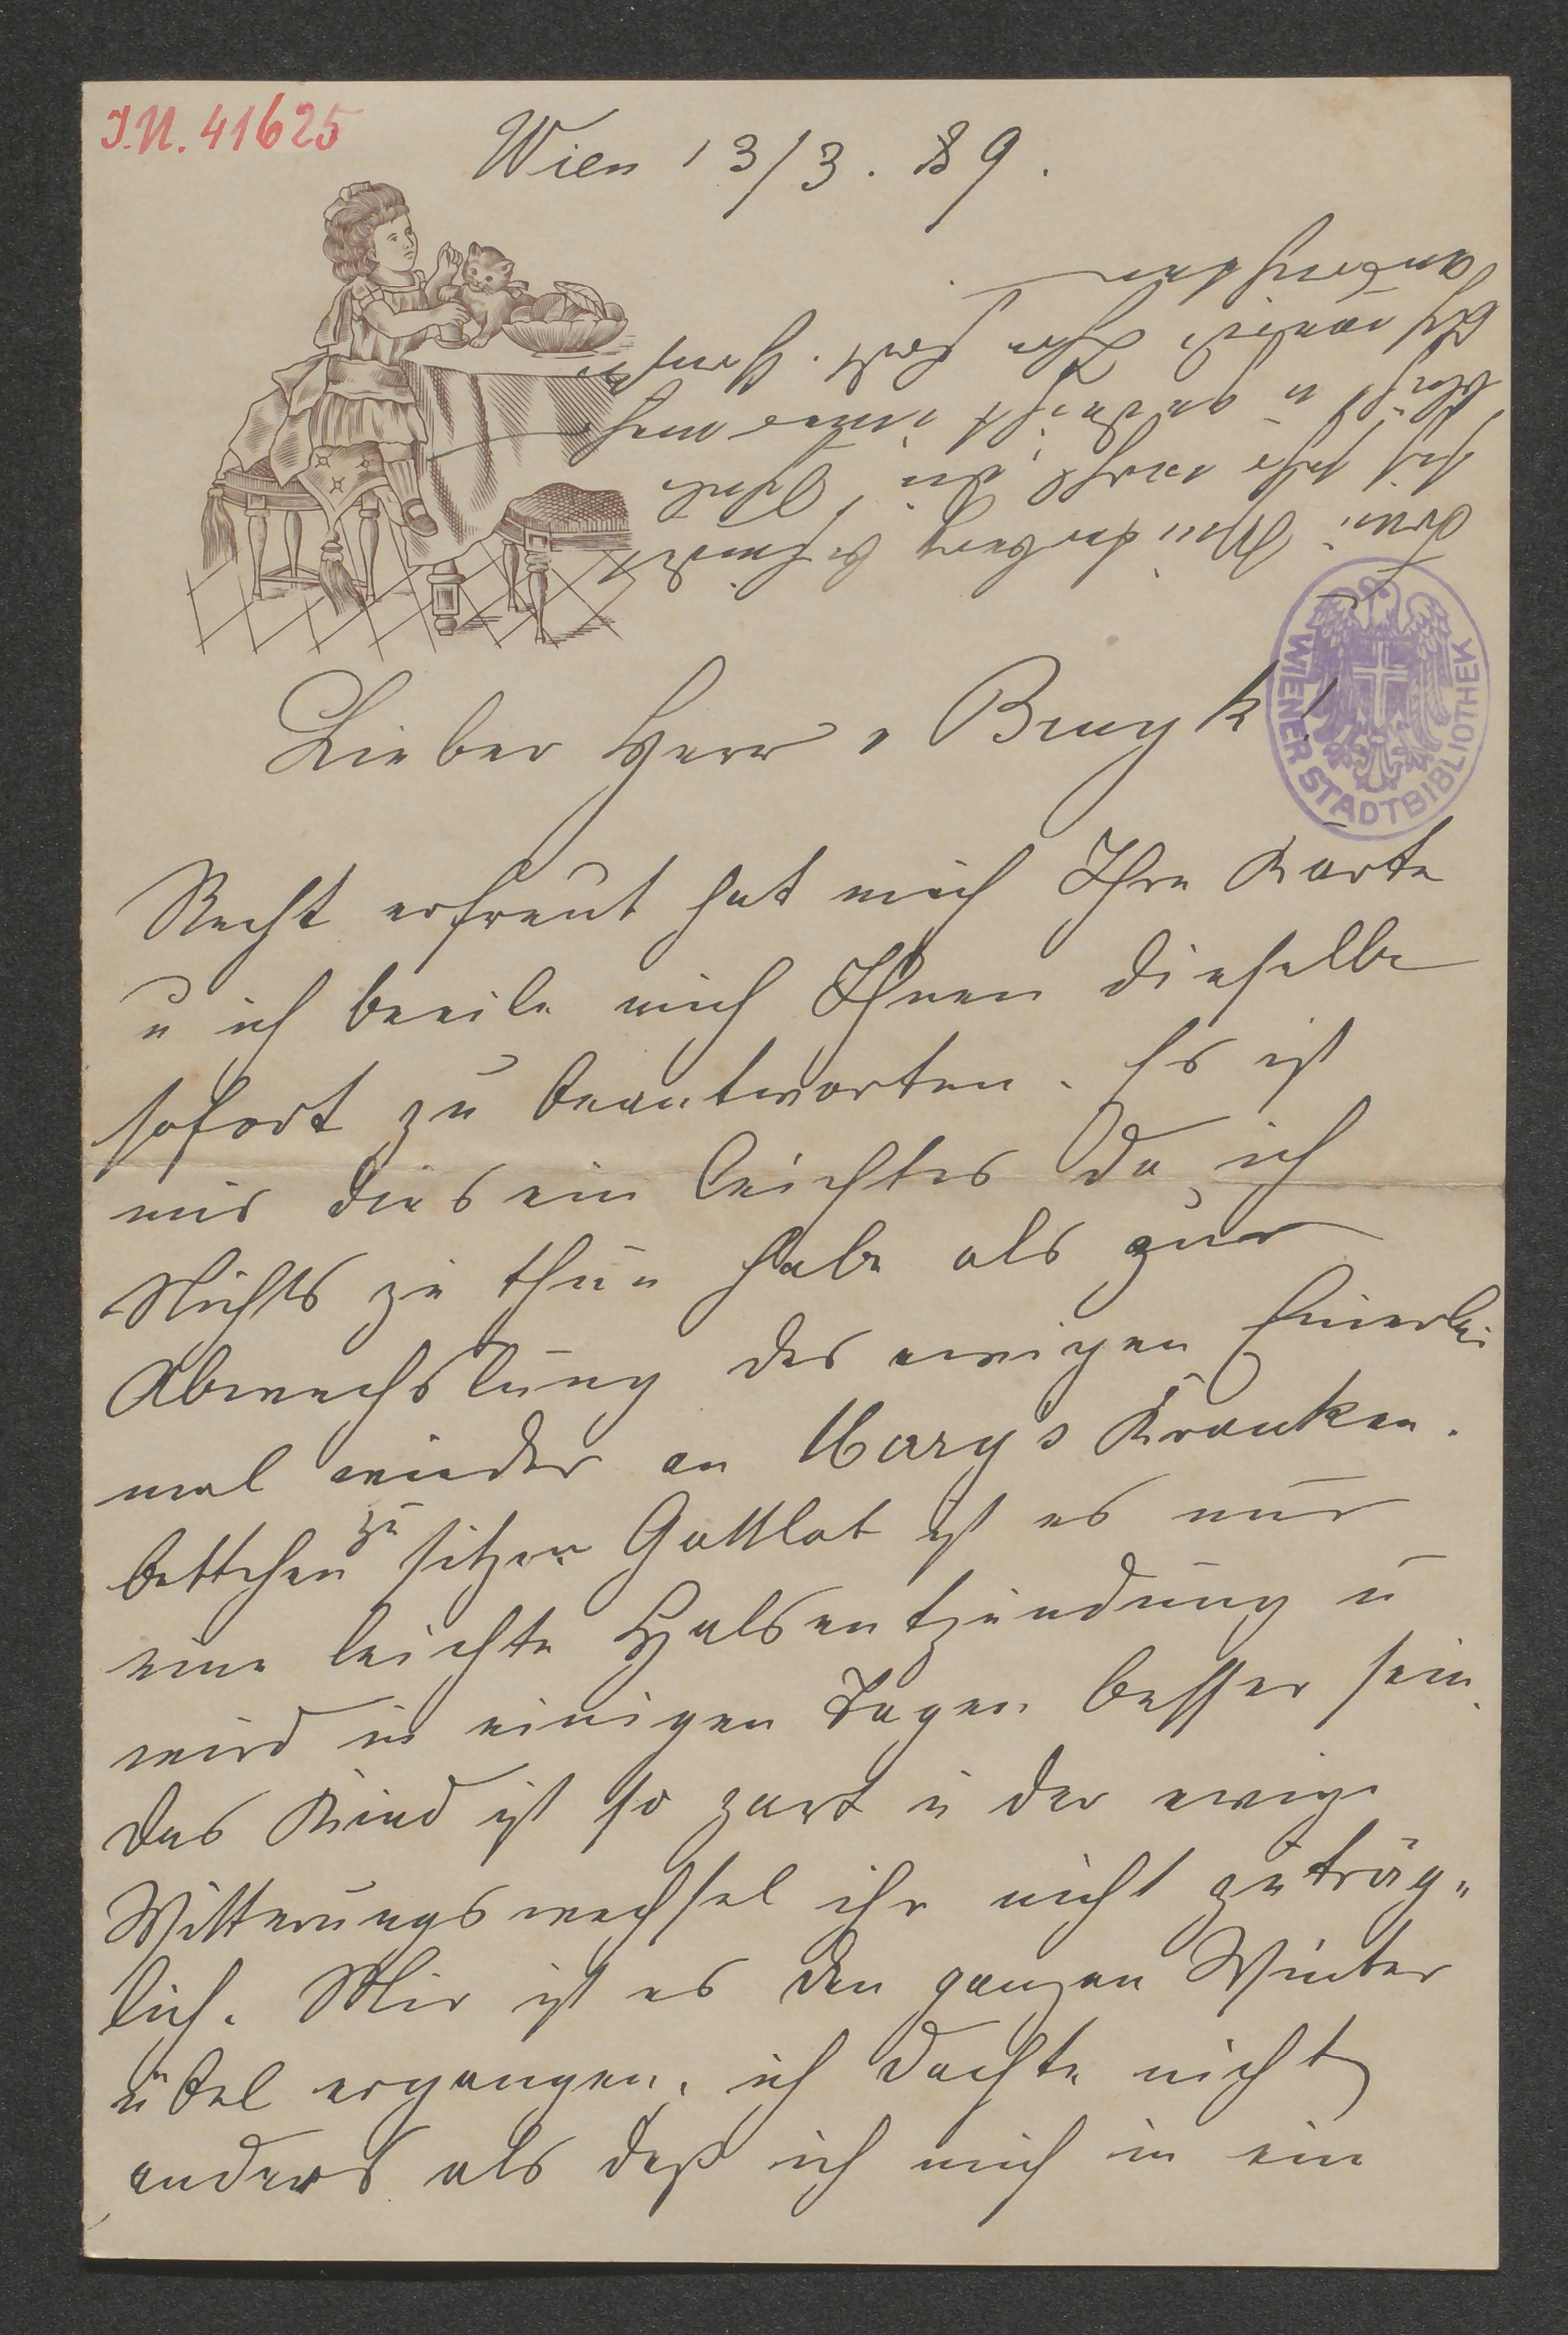 J.N. 41625
Wien 13/3. 89.
Lieber Herr v Bruyk!
WIENER STADTBIBLIOTHEK
Recht erfreut hat mich Ihre Karte
u ich beeile mich Ihnen dieselbe
sofort zu beantworten. Es ist
mir dies ein leichtes da ich
Nichts zu thun habe als zur
Abwechslung des ewigen Einerlei
mal wieder an Mary's Kranken-
bettchen zu sitzen Gottlob ist es nur
eine leichte Halsentzündung u
wird in einigen Tagen besser sein.
das Kind ist so zart u der ewige
Witterungswechsel ihr nicht zuträg-
lich. Mir ist es den ganzen Winter
übel ergangen, ich dachte nicht
anders als daß ich mich in ein